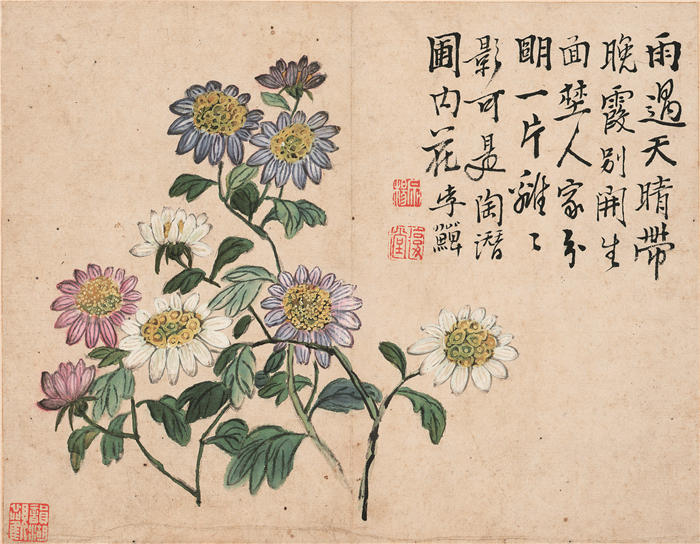 雨過天晴帶
晚霞別開生
面埜人家分
眀一片離〻
影可是陶潛
圃內花 李鱓